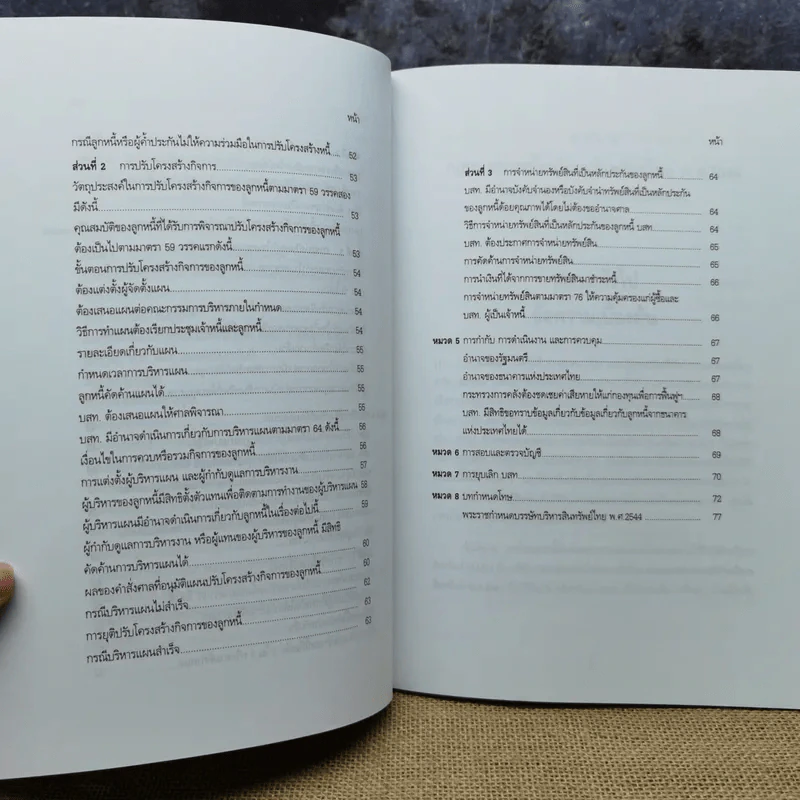 หน้า
กรณีลูกหนี้หรือผู้ค้ำประกันไม่ให้ความร่วมมือในการปรับโครงสร้างหนี้.... 52
ส่วนที่ 2 การปรับโครงสร้างกิจการ.... 53
วัตถุประสงค์ในการปรับโครงสร้างกิจการของลูกหนี้ตามมาตรา 59 วรรคสอง
มีดังนี้.... 53
คุณสมบัติของลูกหนี้ที่ได้รับการพิจารณาปรับโครงสร้างกิจการของลูกหนี้
ต้องเป็นไปตามมาตรา 59 วรรคแรกดังนี้.... 53
ขั้นตอนการปรับโครงสร้างกิจการของลูกหนี้.... 54
ต้องแต่งตั้งผู้จัดตั้งแผน.... 54
ต้องเสนอแผนต่อคณะกรรมการบริหารภายในกำหนด.... 54
วิธีการทำแผนต้องเรียกประชุมเจ้าหนี้และลูกหนี้.... 54
รายละเอียดเกี่ยวกับแผน.... 55
กำหนดเวลาการบริหารแผน.... 55
ลูกหนี้คัดค้านแผนได้.... 55
บสท. ต้องเสนอแผนให้ศาลพิจารณา.... 55
บสท. มีอำนาจดำเนินการเกี่ยวกับการบริหารแผนตามมาตรา 64 ดังนี้.... 56
เงื่อนไขในการควบหรือรวมกิจการของลูกหนี้.... 56
การแต่งตั้งผู้บริหารแผน และผู้กำกับดูแลการบริหารงาน.... 57
ผู้บริหารของลูกหนี้มีสิทธิตั้งตัวแทนเพื่อติดตามการทำงานของผู้บริหารแผน 58
ผู้บริหารแผนมีอำนาจดำเนินการเกี่ยวกับลูกหนี้ในเรื่องต่อไปนี้.... 59
ผู้กำกับดูแลการบริหารงาน หรือผู้แทนของผู้บริหารของลูกหนี้ มีสิทธิ
คัดค้านการบริหารแผนได้.... 60
ผลของคำสั่งศาลที่อนุมัติแผนปรับโครงสร้างกิจการของลูกหนี้.... 60
กรณีบริหารแผนไม่สำเร็จ.... 62
การยุติปรับโครงสร้างกิจการของลูกหนี้.... 63
กรณีบริหารแผนสำเร็จ.... 63
หน้า
ส่วนที่ 3 การจำหน่ายทรัพย์สินที่เป็นหลักประกันของลูกหนี้.... 64
บสท. มีอำนาจบังคับจำนองหรือบังคับจำนำทรัพย์สินที่เป็นหลักประกัน
ของลูกหนี้ด้อยคุณภาพได้โดยไม่ต้องขออำนาจศาล.... 64
วิธีการจำหน่ายทรัพย์สินที่เป็นหลักประกันของลูกหนี้ บสท..... 64
บสท. ต้องประกาศการจำหน่ายทรัพย์สิน.... 65
การคัดค้านการจำหน่ายทรัพย์สิน.... 65
การนำเงินที่ได้จากการขายทรัพย์สินมาชำระหนี้.... 66
การจำหน่ายทรัพย์สินตามมาตรา 76 ให้ความคุ้มครองแก่ผู้ซื้อและ
บสท. ผู้เป็นเจ้าหนี้.... 66
หมวด 5 การกำกับ การดำเนินงาน และการควบคุม.... 67
อำนาจของรัฐมนตรี.... 67
อำนาจของธนาคารแห่งประเทศไทย.... 67
กระทรวงการคลังต้องชดเชยค่าเสียหายให้แก่กองทุนเพื่อการฟื้นฟูฯ.... 68
บสท. มีสิทธิขอทราบข้อมูลเกี่ยวกับข้อมูลเกี่ยวกับลูกหนี้จากธนาคาร
แห่งประเทศไทยได้.... 68
หมวด 6 การสอบและตรวจบัญชี.... 69
หมวด 7 การยุบเลิก บสท..... 70
หมวด 8 บทกำหนดโทษ.... 72
พระราชกำหนดบรรษัทบริหารสินทรัพย์ไทย พ.ศ.2544.... 77